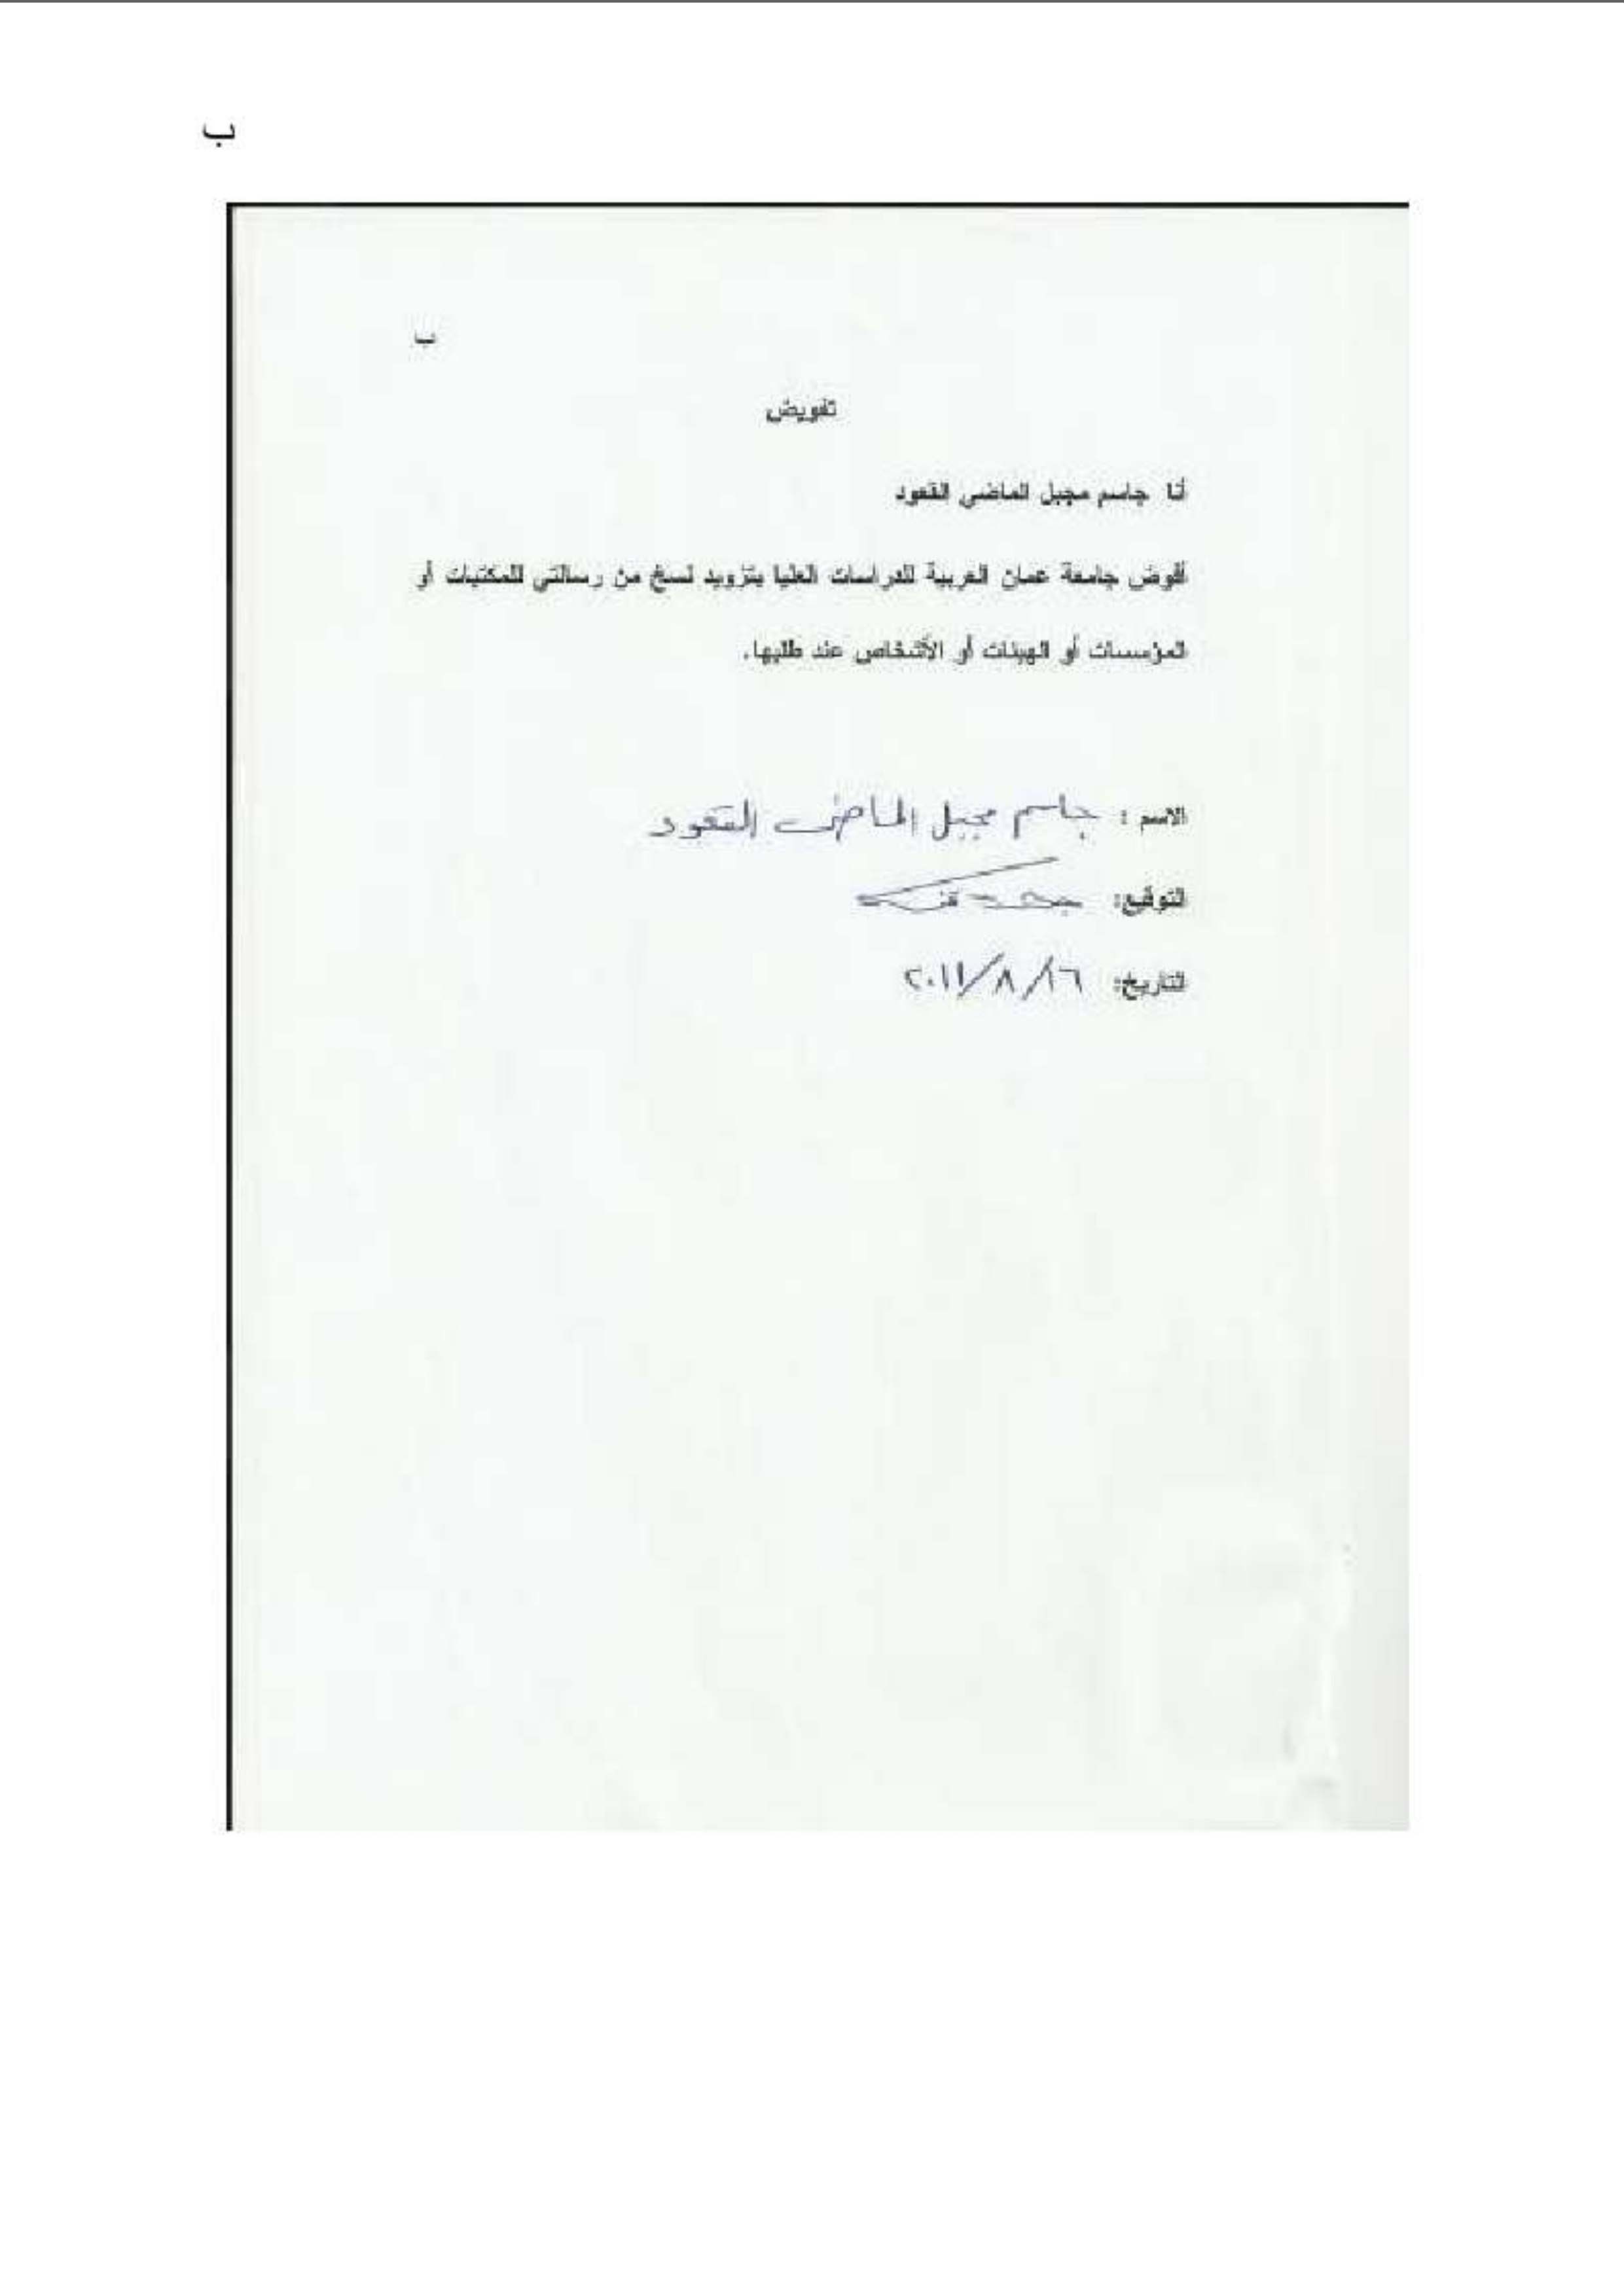 ب
ب
تفويض
أنا جاسم مجبل الماضي القعود
أفوض جامعة عمان العربية للدراسات العليا بتزويد نسخ من رسالتي للمكتبات أو
المؤسسات أو الهيئات أو الأشخاص عند طلبها.
الاسم : جاسم مجبل الماضي القعود
التوقيع:
التاريخ: ١٦/٨/٢٠١١